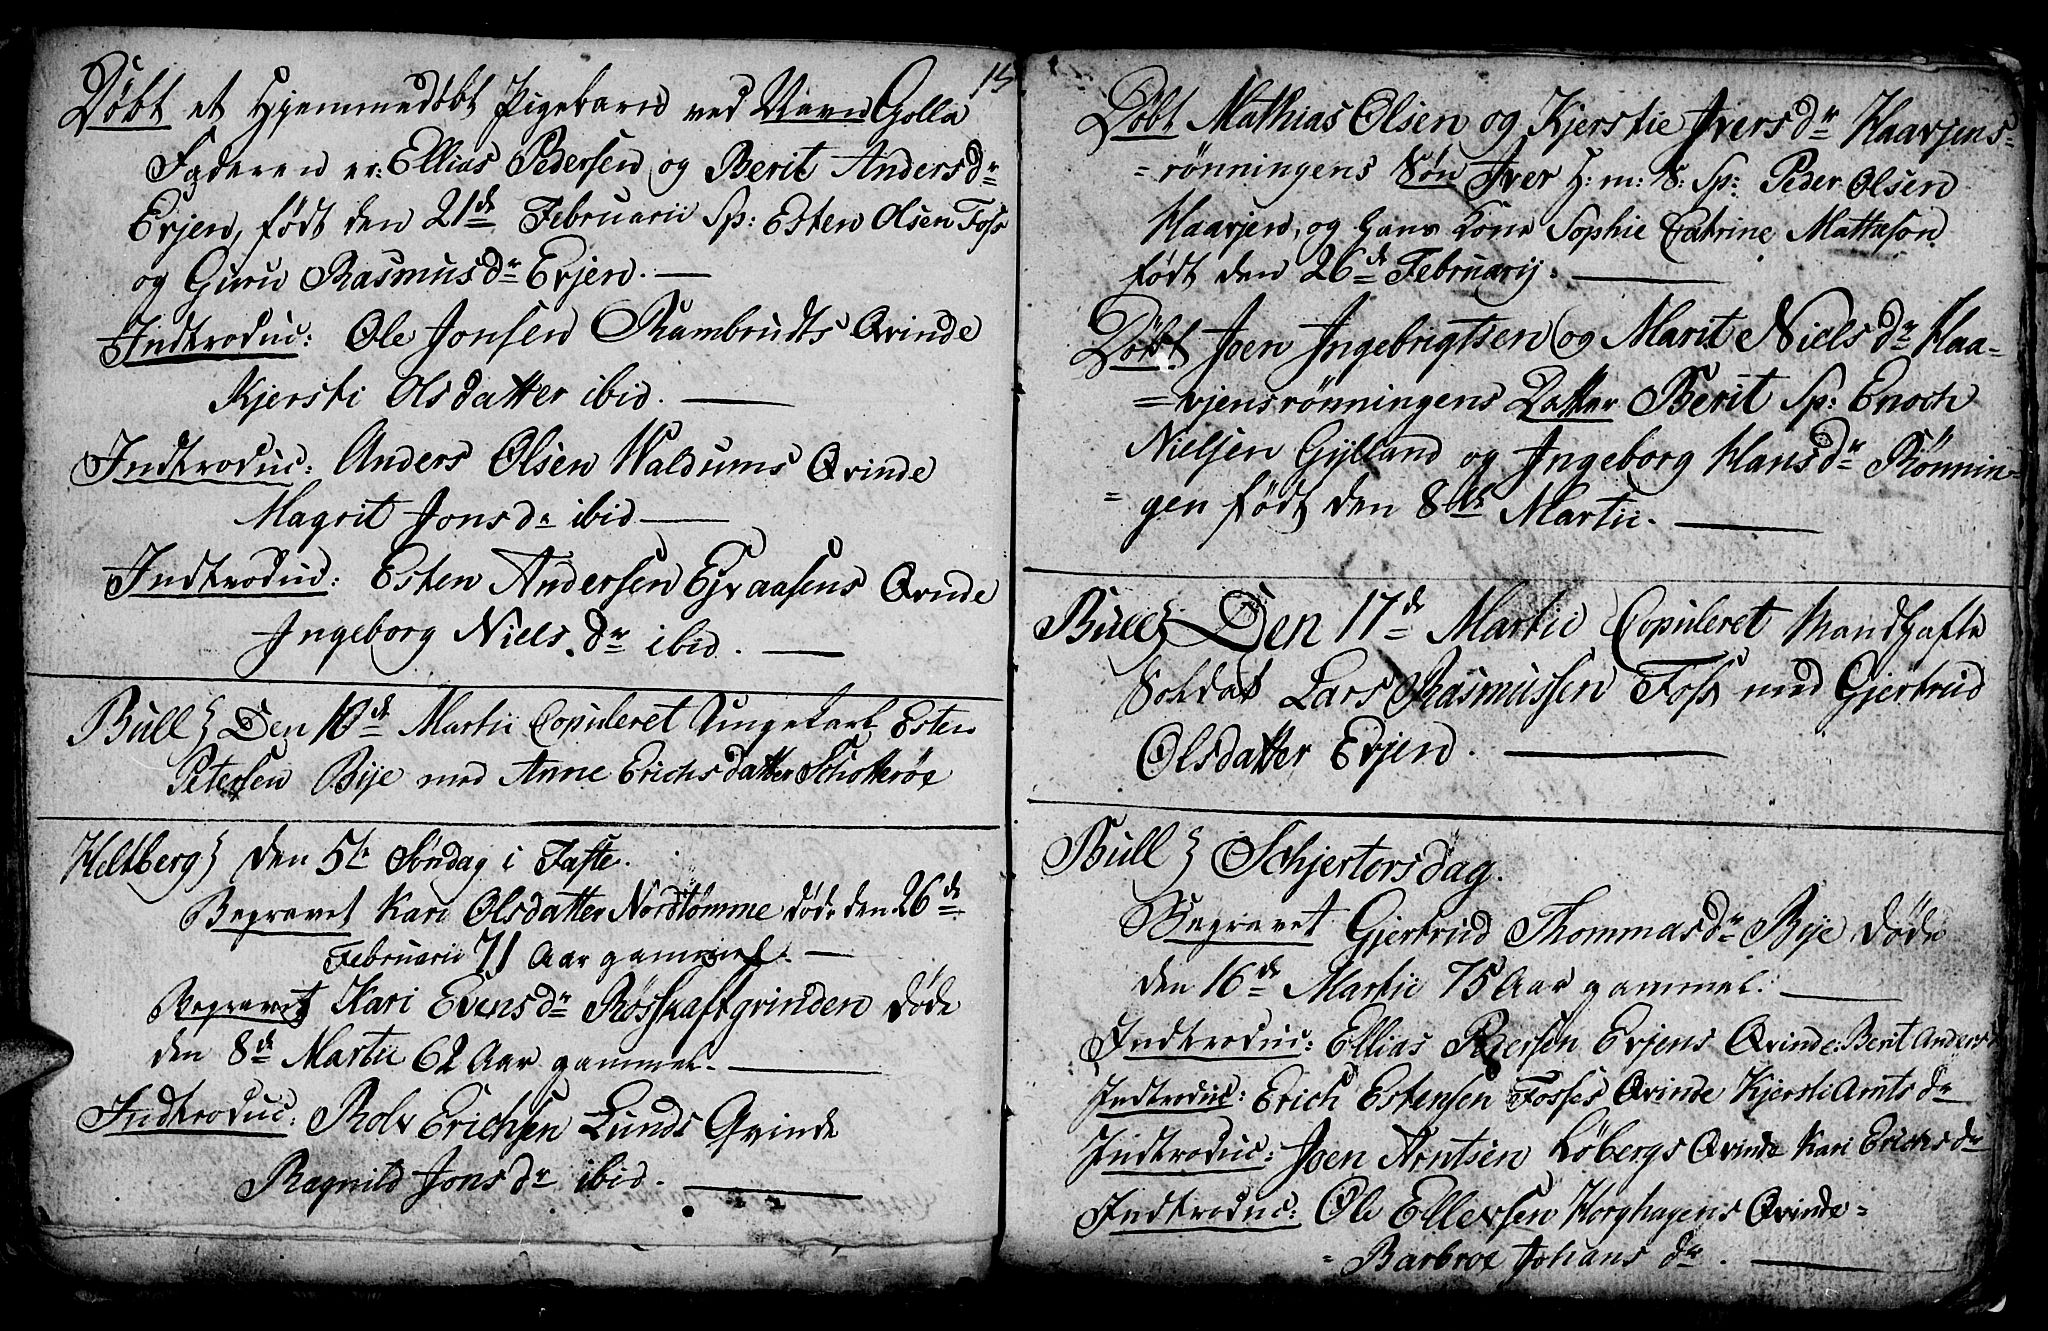 15
Døbt et Hjemmedøbt Pigebarn ved Navn Golla
Faderen er: Ellias Pedersen og Berit Andersdr
Evjen, født den 21de Februarii Sp: Esten Olsen Foss
og Guru Rasmusdr Evjen.
Indtroduc: Ole Jonsen Rambrudts Qvinde
Kjersti Olsdatter ibid.
Indtroduc: Anders Olsen Waldums Qvinde
Magrit Jonsdr ibid
Indtroduc: Esten Andersen Ejvaasens Qvnde
Ingeborg Nielsdr ibid.
Bull} Den 10de Martii Copuleret Ungekarl Esten
Petersen Bije med Anne Erichsdatter Schotterøe
Heltberg} den 5te Søndag i Faste.
Begravet Kari Olsdatter Nordtømme døde den 26de
Februarii 71 Aar gammel.
Begravet Kari Evensdr Røsskaftgrinden døde
den 8de Martii 62 Aar gammel.
Indtroduc: Rolv Erichsen Lunds Qvinde
Ragnild Jonsdr ibid.
Døbt Mathias Olsen og Kjerstie Iversdr Haarjens-
=rönningens Søn Iver H: m: S: Sp: Peder Olsen
Haarjen, og hans Kone Sophie Catrine Matheson
født den 26de Februarij.
Døbt Joen Ingebrigtsen og Marit Nielsdr Haa=
=rjensrönningens Datter Berit Sp: Enoch
Nielsen Gylland og Ingeborg Hansdr Rønnin=
=gen født den 8de Martii.
Bull} Den 17de Martii Copuleret Mandhafte
Soldat Lars Rasmussen Foss med Gjertrud
Olsdatter Evjen.
Bull} Schjertorsdag.
Begravet Gjertrud Thommasdr Bije døde
den 16de Martii 75 Aar gammel.
Indtroduc: Ellias Pedersen Evjens Qvinde: Berit Anders
Indtroduc: Erich Estensen Fosses Qvinde Kjersti Arnts dr
Indtroduc: Joen Arntsen Løbergs Qvinde Kari Erichsdr
Indtroduc: Ole Ellevsen Horghagens Qvinde=
=Barbroe Johans dr.